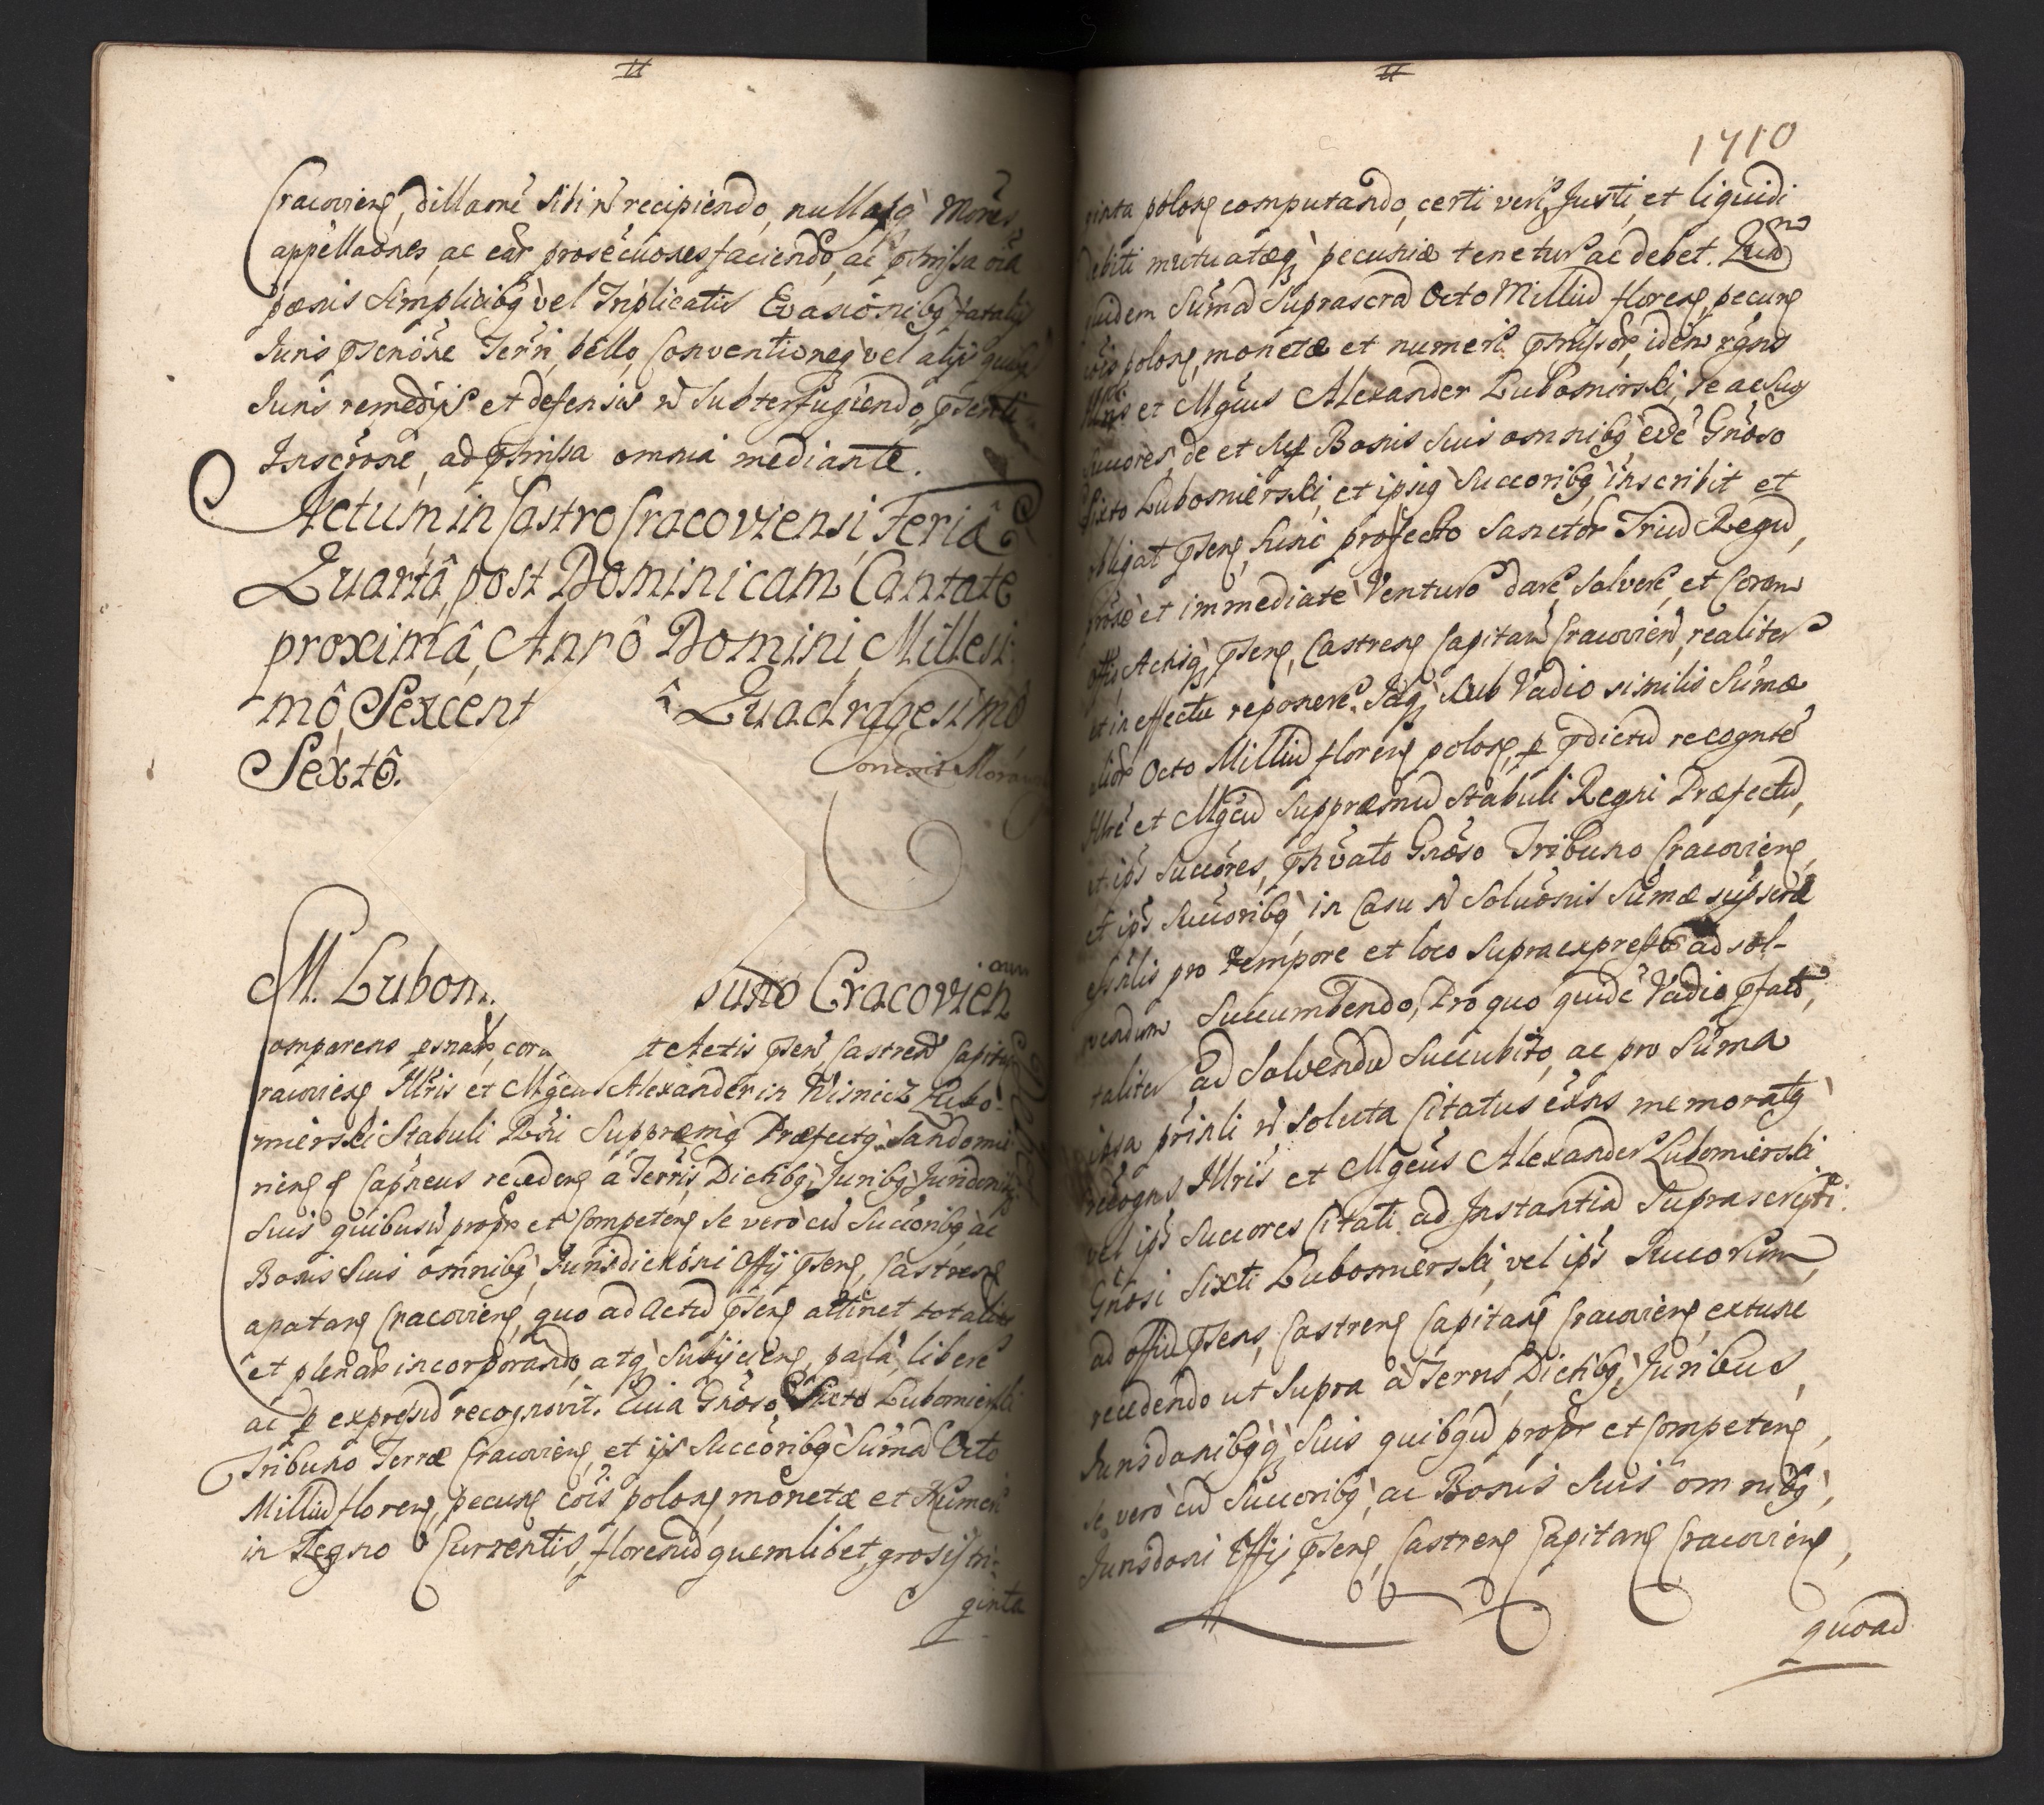 Cracovieng, dillaōne Sibi n̄ recipiendo, nullasq; Mōnes,
appellaōnes, ac eār prosecuōnes faciendo, ac p̄missa oīa
pænis simplicibq; vel Triplicatis Evasionibq; fatalij
Juris p̄scriōne Terri, bello, Conventioneq; vel alijs
Juris remedijs et defensis n̄ Subterfugiendo, p̄senti
Inscr̄ōne, ad p̄missa omnia mediante.
Actum in Castro Cracoviensi, Feriâ
Quartâ, post Dominicam Cantate
proximâ, Annô Domini Millesi
mô, Sexcent ô Quadragesimô
Sextô.
M. Lubom. buno Cracovien
omparens p̄sonār, cora t Actis p̄sen Castren Capita
racovieng Illris et Mgcus Alexander in Wisnicz Lubo-
mierski Stabuli R̄ni Suppræmq; Præfectq; Sandomi
rieng q Capneus recedeng à Terris, Dictibq; Juribq; Jurisdonibq;
Suis quibusū propr et Competeng Se verò cū Succoribq; ac
Bonis Suis omnibq; Jurisdictioni Offij p̄seng, Castreng
apataneg Cracovieng, quo ad Actū p̄seng attinet totaliter
et plenār incorporando, atq; Subijcieng, palā, liberè
ac p expressū recognovit. Quia Gn̄oso Sixto Lubomierski
Tribuno Terræ Cracovieng, et ijs Succoribq; Sum̄ā Octo
Milliū floreng, pecung cois polong, monetæ et Numeri
in Regno Currentis, florenū quemlibet, grosij tri-
ginta
1710
ginta polong computando, certi veri, Justi, et liquidi
debiti mutuatæq; pecuniæ tenetur ac debet. Quā
quidem Sum̄ā Suprascrā Octo Milliū floreng, pecung
cois polong, monetæ et numeri p̄missor, idem rḡns
Illris et Mgcus Alexander Lubomirski, Se ac Suq
Succores, de et Sup Bonis Suis omnibq; eid̄ē Gn̄oso
Sixto Lubomierski, et ipsiq Succoribq; inscribit et
obligat p̄seng, hinc pro festo Sanctor Triū Regū,
prōxe et immediate Venturo dare, Solvere, et Coram
Offō, Actisq; p̄seng, Castreng Capitan Cracovien, realiter
et in effectu reponere. Idq; Sub Vadio similis Sum̄æ
alior Octo Milliū floreng polong, p p̄dictū recognte
Illrē et Mgcū Suppræmū Stabuli Regni Præfectū,
et ips Succores, p̄nvato Gn̄oso Tribuno Cracovieng,
et ips Succoribq; in Casu n̄ Soluōnis Sum̄æ supscrā
p̄nalis pro tempore et loco Supra expresso ad sol-
vendum Succumbendo, Pro quo quidē Vadio p̄fato,
taliter ad Solvendū Succubito, ac pro Sum̄a
ipsa prīnli n̄ soluta Citatus exns memoratq;
recogns Illris et Mgcus Alexander Lubomierski
vel ips Succores Citati ad Instantiā Suprascripti
Gn̄osi Sixti Lubomierski, vel ips Succorum,
ad Offiū p̄sens, Castreng Capitang Cracovieng, extunc
recedendo ut Supra à Terris, Dictibq; Juribus,
Jurisdonibqq; Suis quibqū propr et Competeng,
Se verò cū Succoribq; ac Bonis Suis omnibq;
Jurisdoni Offij p̄seng, Castreng Capitang Cracovieng,
quoad